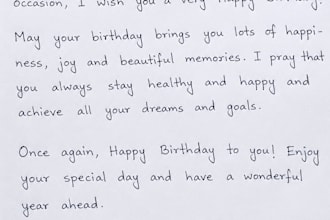 occasion, I wish you a very Happy Birthday.
May your birthday brings you lots of happi-
ness, joy and beautiful memories. I pray that
you always stay healthy and happy and
achieve all your dreams and goals.
Once again, Happy Birthday to you! Enjoy
your special day and have a wonderful
year ahead.